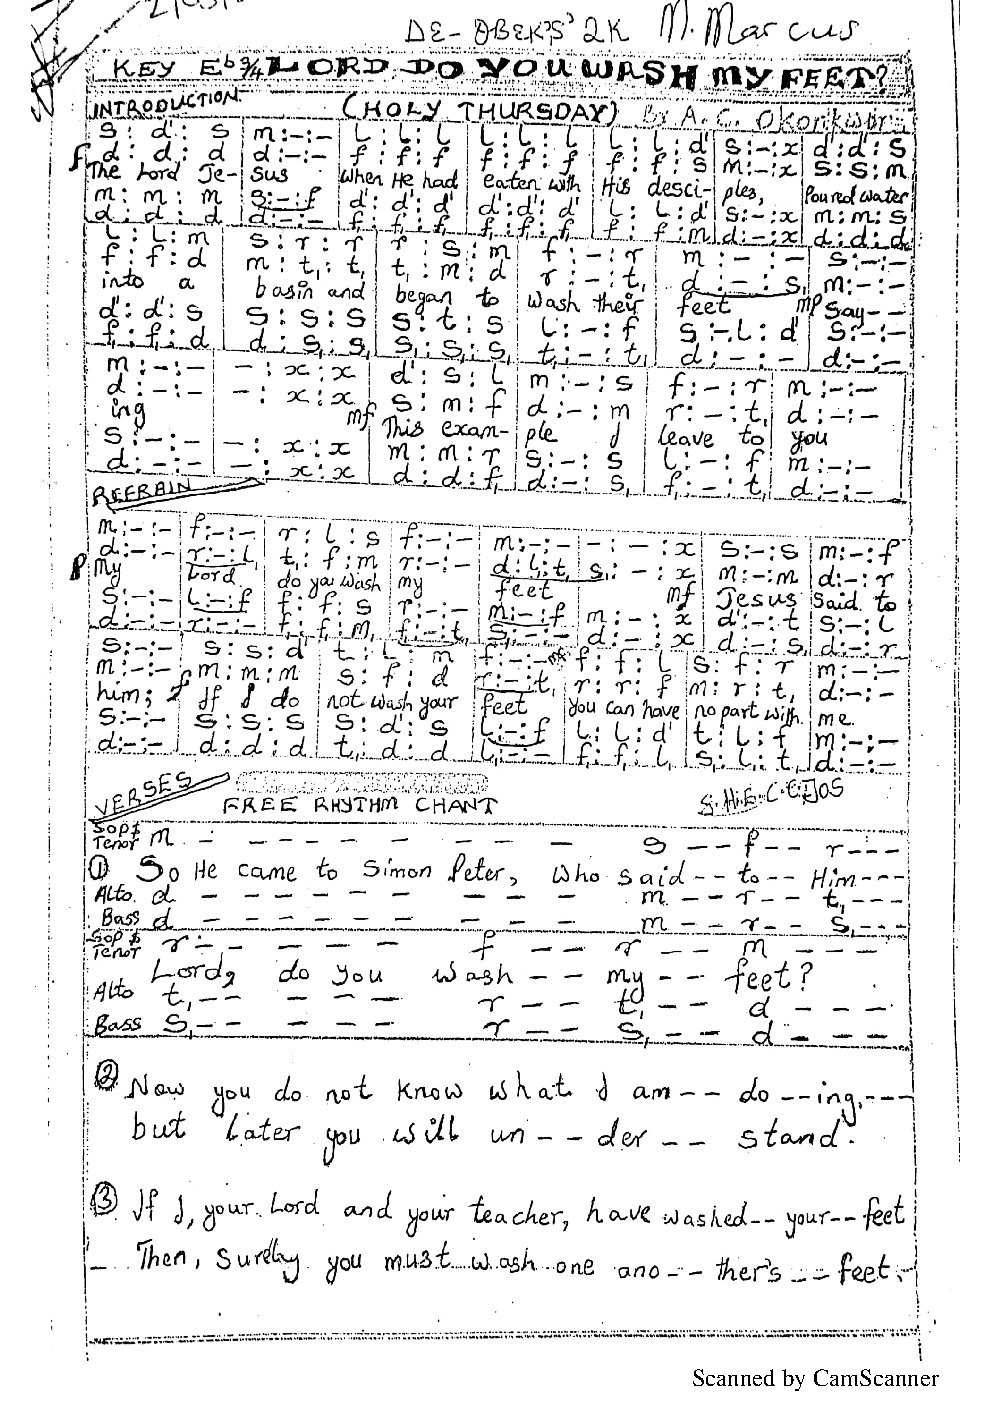 DE-OBEK'S' 2K M. Marcus
KEY Eb 3/4 LORD DO YOU WASH MY FEET?
INTRODUCTION. (HOLY THURSDAY) By A. C. Okonkwor
s : d' : s | m:-:- | l : l : l | l : l : l | l : l : d' | s:-:x | d':d':s
f d : d : d | d:-:- | f : f : f | f : f : f | f : f : s | m:-:x | s:s:m
The Lord Je- sus when He had eaten with His desci- ples, Poured water
m : m : m | s:-:f | d':d':d' | d':d':d' | l : l:d' | s:-:x | m:m:s
d : d : d | d:-:- | f, f, f, | f, f, f, | f : f:m | d:-:x | d:d:d
l : l : m | s : r : r | r : s : m | f : - : r | m : - : - | s:-:-
f : f : d | m : t, : t, | t, : m : d | r : - : t, | d : - : s, | m:-:-
into a basin and began to wash their feet mp Say--
d' : d' : s | s : s : s | s : t : s | l : - : f | s :-.l : d' | s:-:-
f, : f, : d | d : s, : s, | s, : s, : s, | t, : - : t, | d : - : - | d:-:-
m:-:- | - : x : x | d' : s : l | m : - : s | f : - : r | m:-:-
d:-:- | - : x : x | s : m : f | d : - : m | r : - : t, | d:-:-
ing mf This exam- ple I leave to you
s:-:- | - : x : x | m : m : r | s : - : s | l : - : f | m:-:-
d:-:- | - : x : x | d : d : f, | d : - : s, | f, : - : t, | d:-:-
REFRAIN
m:-:- | f:-:- | r : l : s | f:-:- | m:-:- | - : - : x | s:-:s | m:-:f
d:-:- | r:-:l, | t, : f : m | r:-:- | d:l,:t, | s, : - : x | m:-:m | d:-:r
p My Lord do you wash my feet mf Jesus said to
s:-:- | l:-:f | f : f : s | r:-:- | m:-:f | m : - : x | d':-:t | s:-:l
d:-:- | r:-:- | f, : f, : m, | f:-:t, | s,:-:- | d : - : x | d:-:s, | d:-:r
s:-:- | s:s:d' | t : l : m | f:-:- | f : f : l | s : f : r | m:-:-
m:-:- | m:m:m | s : f : d | r:-:t, | r : r : f | m : r : t, | d:-:-
him; f If I do not wash your feet you can have no part with me
s:-:- | s:s:s | s : d' : s | l:-:f | l : l : d' | t : l : f | m:-:-
d:-:- | d:d:d | t, : d : d | l,:-:- | f, : f, : l, | s, : l, : t, | d:-:-
VERSES
FREE RHYTHM CHANT S.H.E.C.CJOS
Sop & Tenor m - - - - - - - - s -- f -- r ---
① So He came to Simon Peter, who said -- to -- Him ---
Alto. d - - - - - - - - m -- r -- t, ---
Bass d - - - - - - - - m -- r -- s, ---
Sop & Tenor r -- - - - f -- r -- m ---
Lord, do you wash -- my -- feet?
Alto t, -- - - - r -- t, -- d ---
Bass s, -- - - - r -- s, -- d ---
② Now you do not know what I am -- do --ing, ---
but later you will un -- der -- stand.
③ If I, your Lord and your teacher, have washed -- your -- feet
Then, Surely you must wash one ano -- ther's -- feet.
Scanned by CamScanner